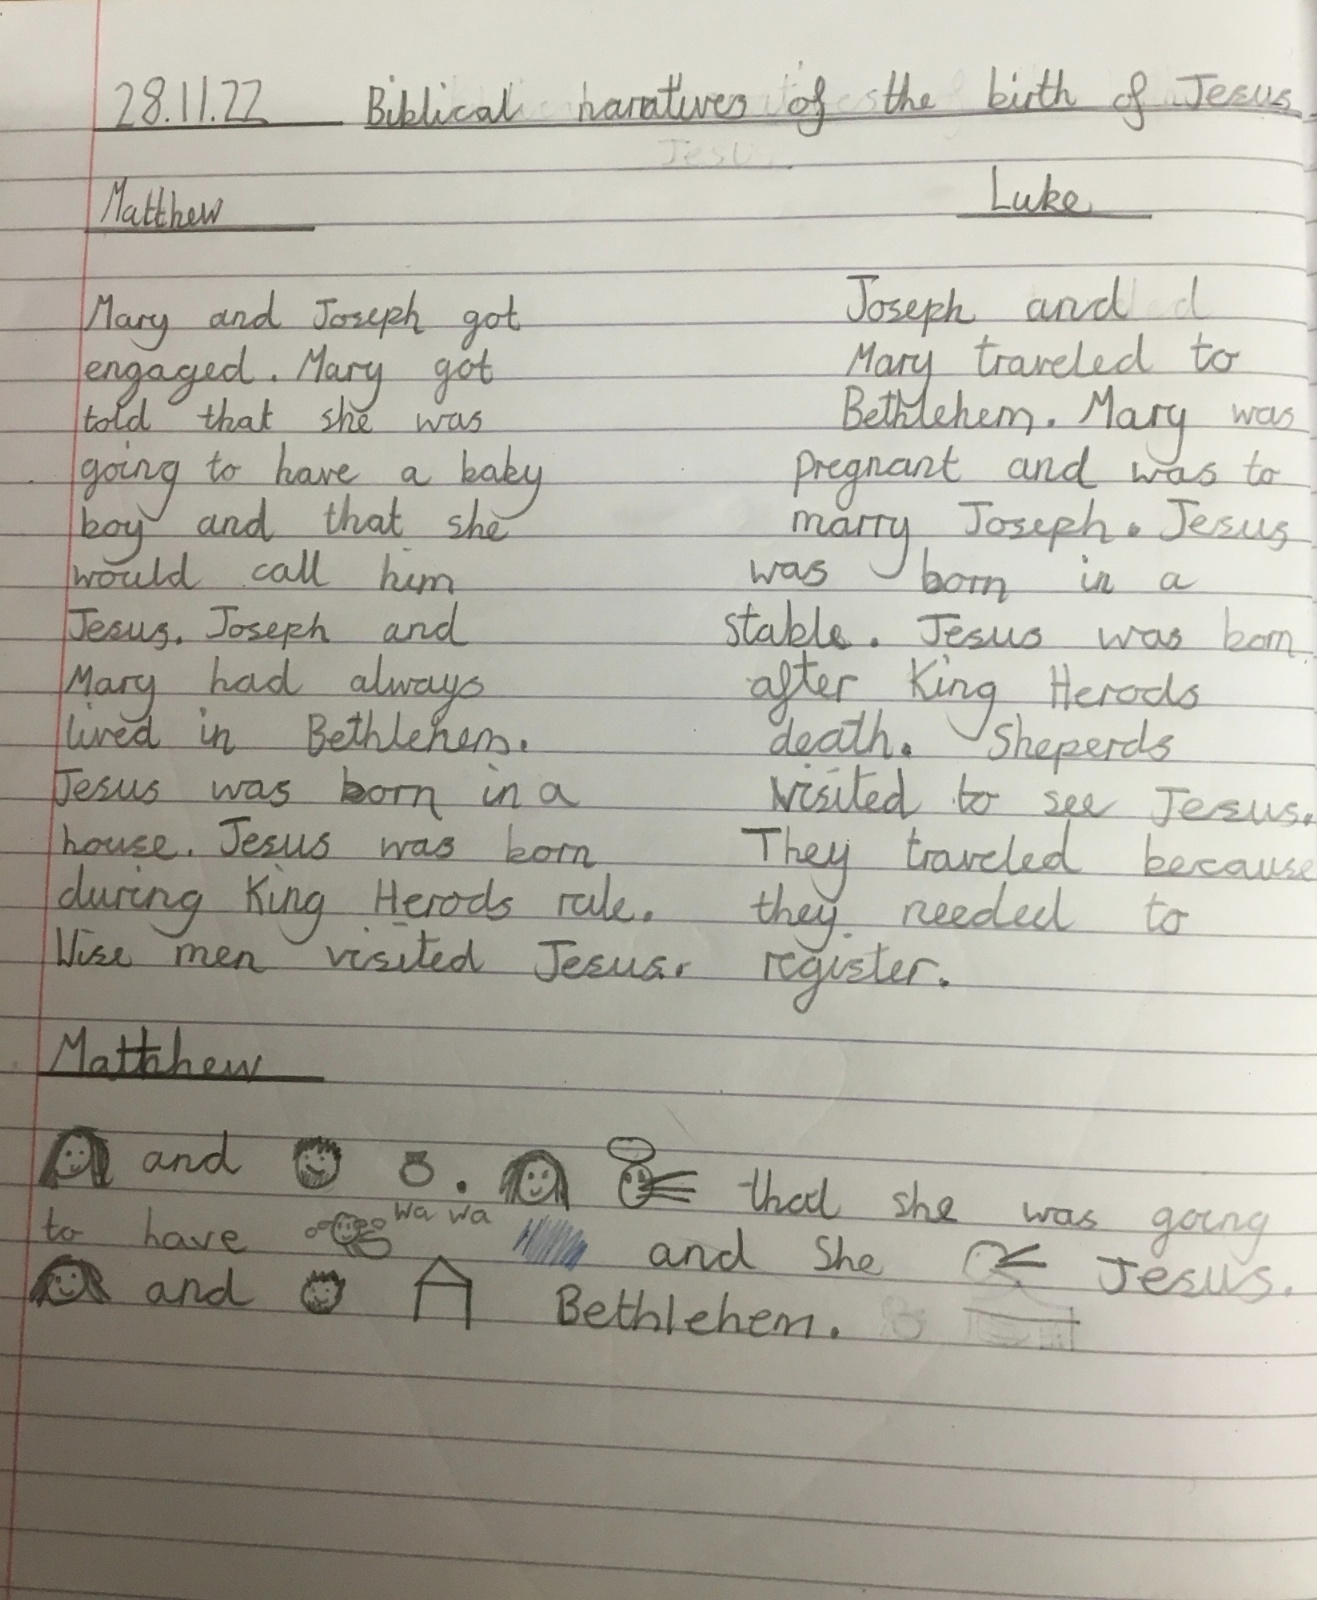 28.11.22 Biblical narratives of the birth of Jesus
Matthew
Mary and Joseph got
engaged. Mary got
told that she was
going to have a baby
boy and that she
would call him
Jesus. Joseph and
Mary had always
lived in Bethlehem.
Jesus was born in a
house. Jesus was born
during King Herods rule.
Wise men visited Jesus.
Luke
Joseph and
Mary traveled to
Bethlehem. Mary was
pregnant and was to
marry Joseph. Jesus
was born in a
stable. Jesus was born
after King Herods
death. Sheperds
visited to see Jesus.
They traveled because
they needed to
register.
Matthew
and . that she was going
to have wa wa and she Jesus.
and Bethlehem.